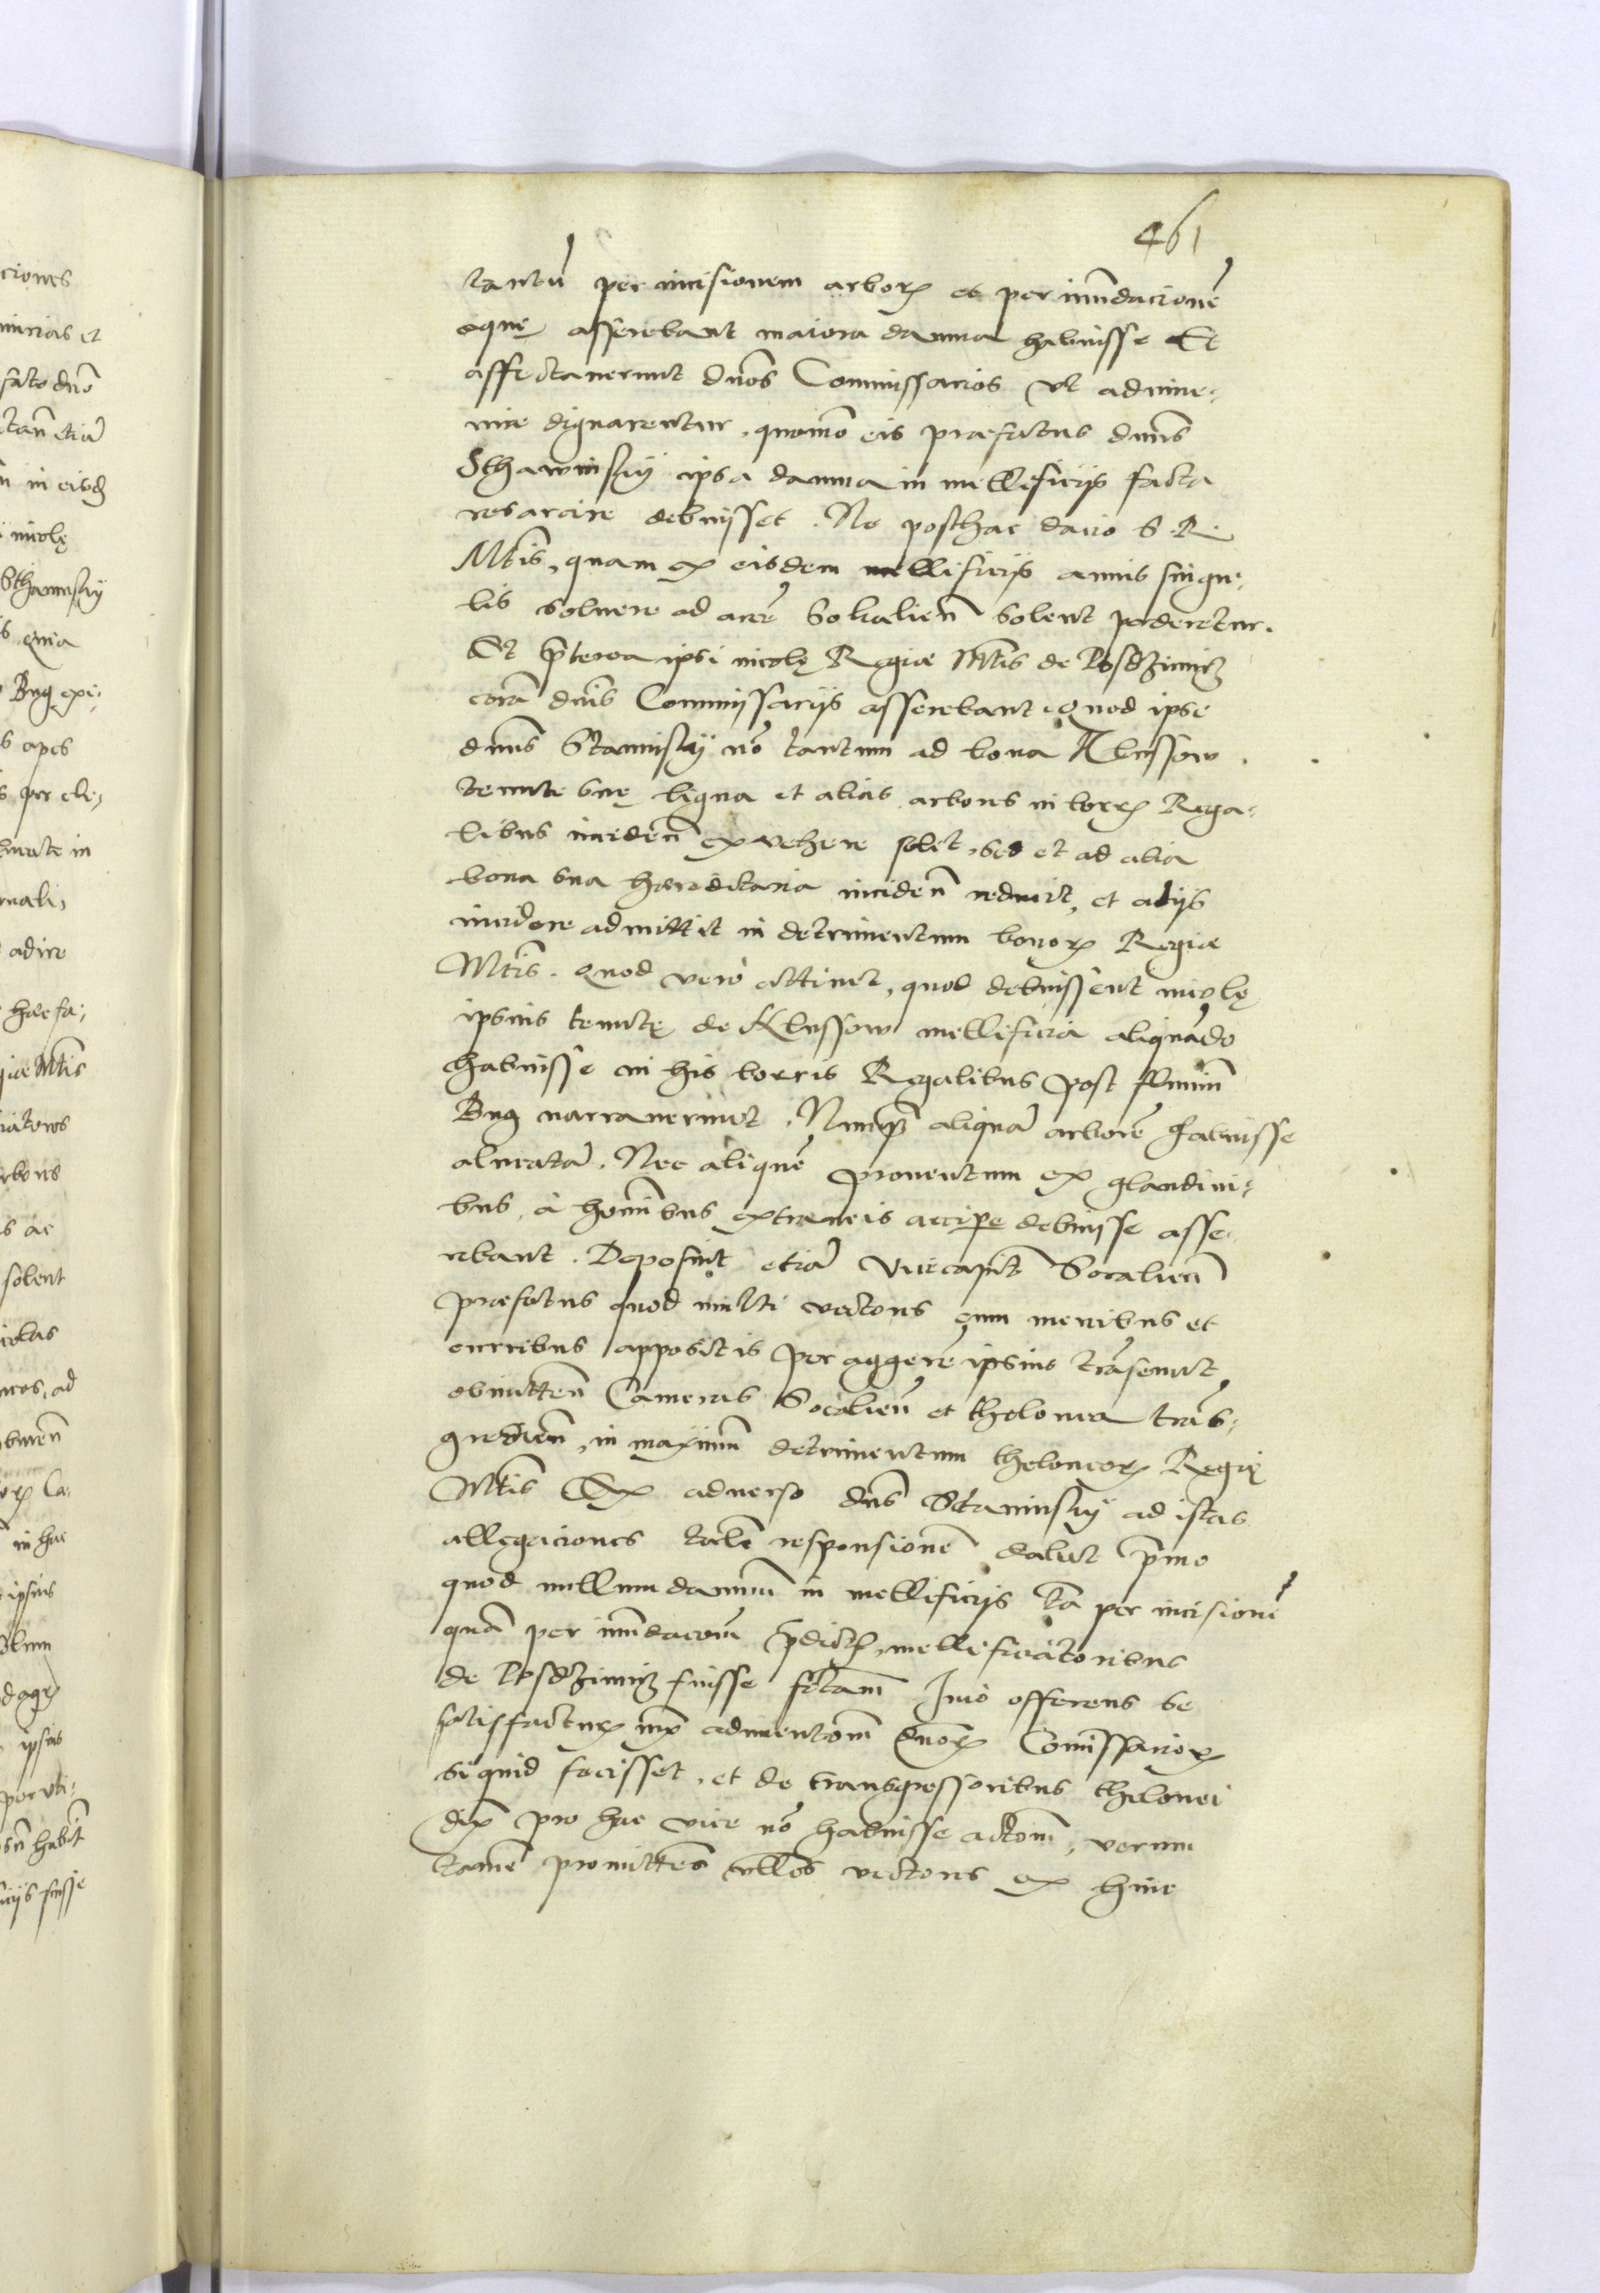 461
tantũ per incisionem arborꝝ et per inũdacionẽ
aquę asserebant maiora damna habuisse Et
affectauerunt dños Commissarios vt adinue-
nire dignarentur, quomõ eis præfatus dnũs
Sthawinskÿ ipsa damna in mellificijs facta
resarcire debuisset. Ne posthac dacio S R
Mtis, quam ex eisdem mellificijs annis singu-
lis soluere ad arcẽ Sokalieñ solent perderetur.
Et p̃terea ipsi incolę Regiæ Mtis de
corã dnĩs Commissarijs asserebant Quod ipse
dnũs Staninskÿ nõ tantum ad bona Klussow
tenute suę ligna et alias arbores in borrꝭ Rega-
libus incideñ ex vehere solet, sed et ad alia
bona sua hæreditaria incideñ reducit, et alijs
incidere admittit in detrimentum bonorꝝ Regiæ
Mtis. Quod vero attinet, quod debuissent incolę
ipsius tenutę de Klussow mellificia aliquãdo
habuisse in his borris Regalibus post fluuiũ
Bug narrauerunt. Nunqꝫ aliquã arborẽ habuisse
alueatã. Nec aliquẽ prouentum ex glandini-
bus, à hominibus extraneis accipe debuisse asse-
rebant. Deposuit etiã vicecapite Socalieñ
præfatus quod multi vectores cum mercibus et
curribus appositis per aggerẽ ipsius trãseunt,
obmitteñ Cameras Socalieñ et thelonea trãs-
gredieñ, in maximũ detrimentum theloneorꝝ Regię
Mtis Ex aduerso dns Staninskÿ ad istas
allegaciones talẽ responsionẽ dabat p̃mo
quod nullum damnũ in mellificijs tã per incisionẽ
quã per inũdacom̃ p̃dictꝭ mellificatoribus
de fuisse fctam̃ Imo offerens se
satisfacturꝝ iuxta adinuentom̃ dnorꝝ Comissariorꝝ
si quid fecisset, et de transgressoribus thelonei
dix̃ pro hac vice nõ habuisse actom̃, verum
tamẽ promittens nullos vectores ex hinc